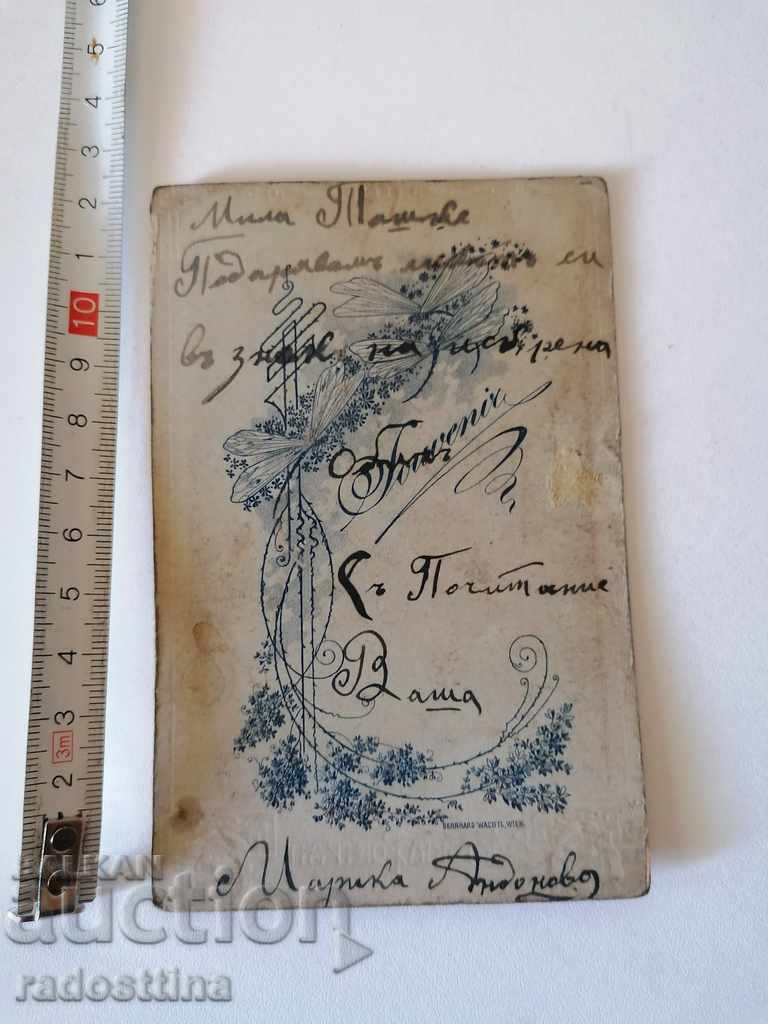 Мила Ташке
Подарявамъ ликътъ си
въ знакъ на искрена
Souvenir
Съ Почитание
Ваша
BERNHARD WACHTL, WIEN.
Марика Андонова
6 5 4 3 2 1 10 9 8 7 6 5 4 3 2
3m
BALKAN
auction
radosttina